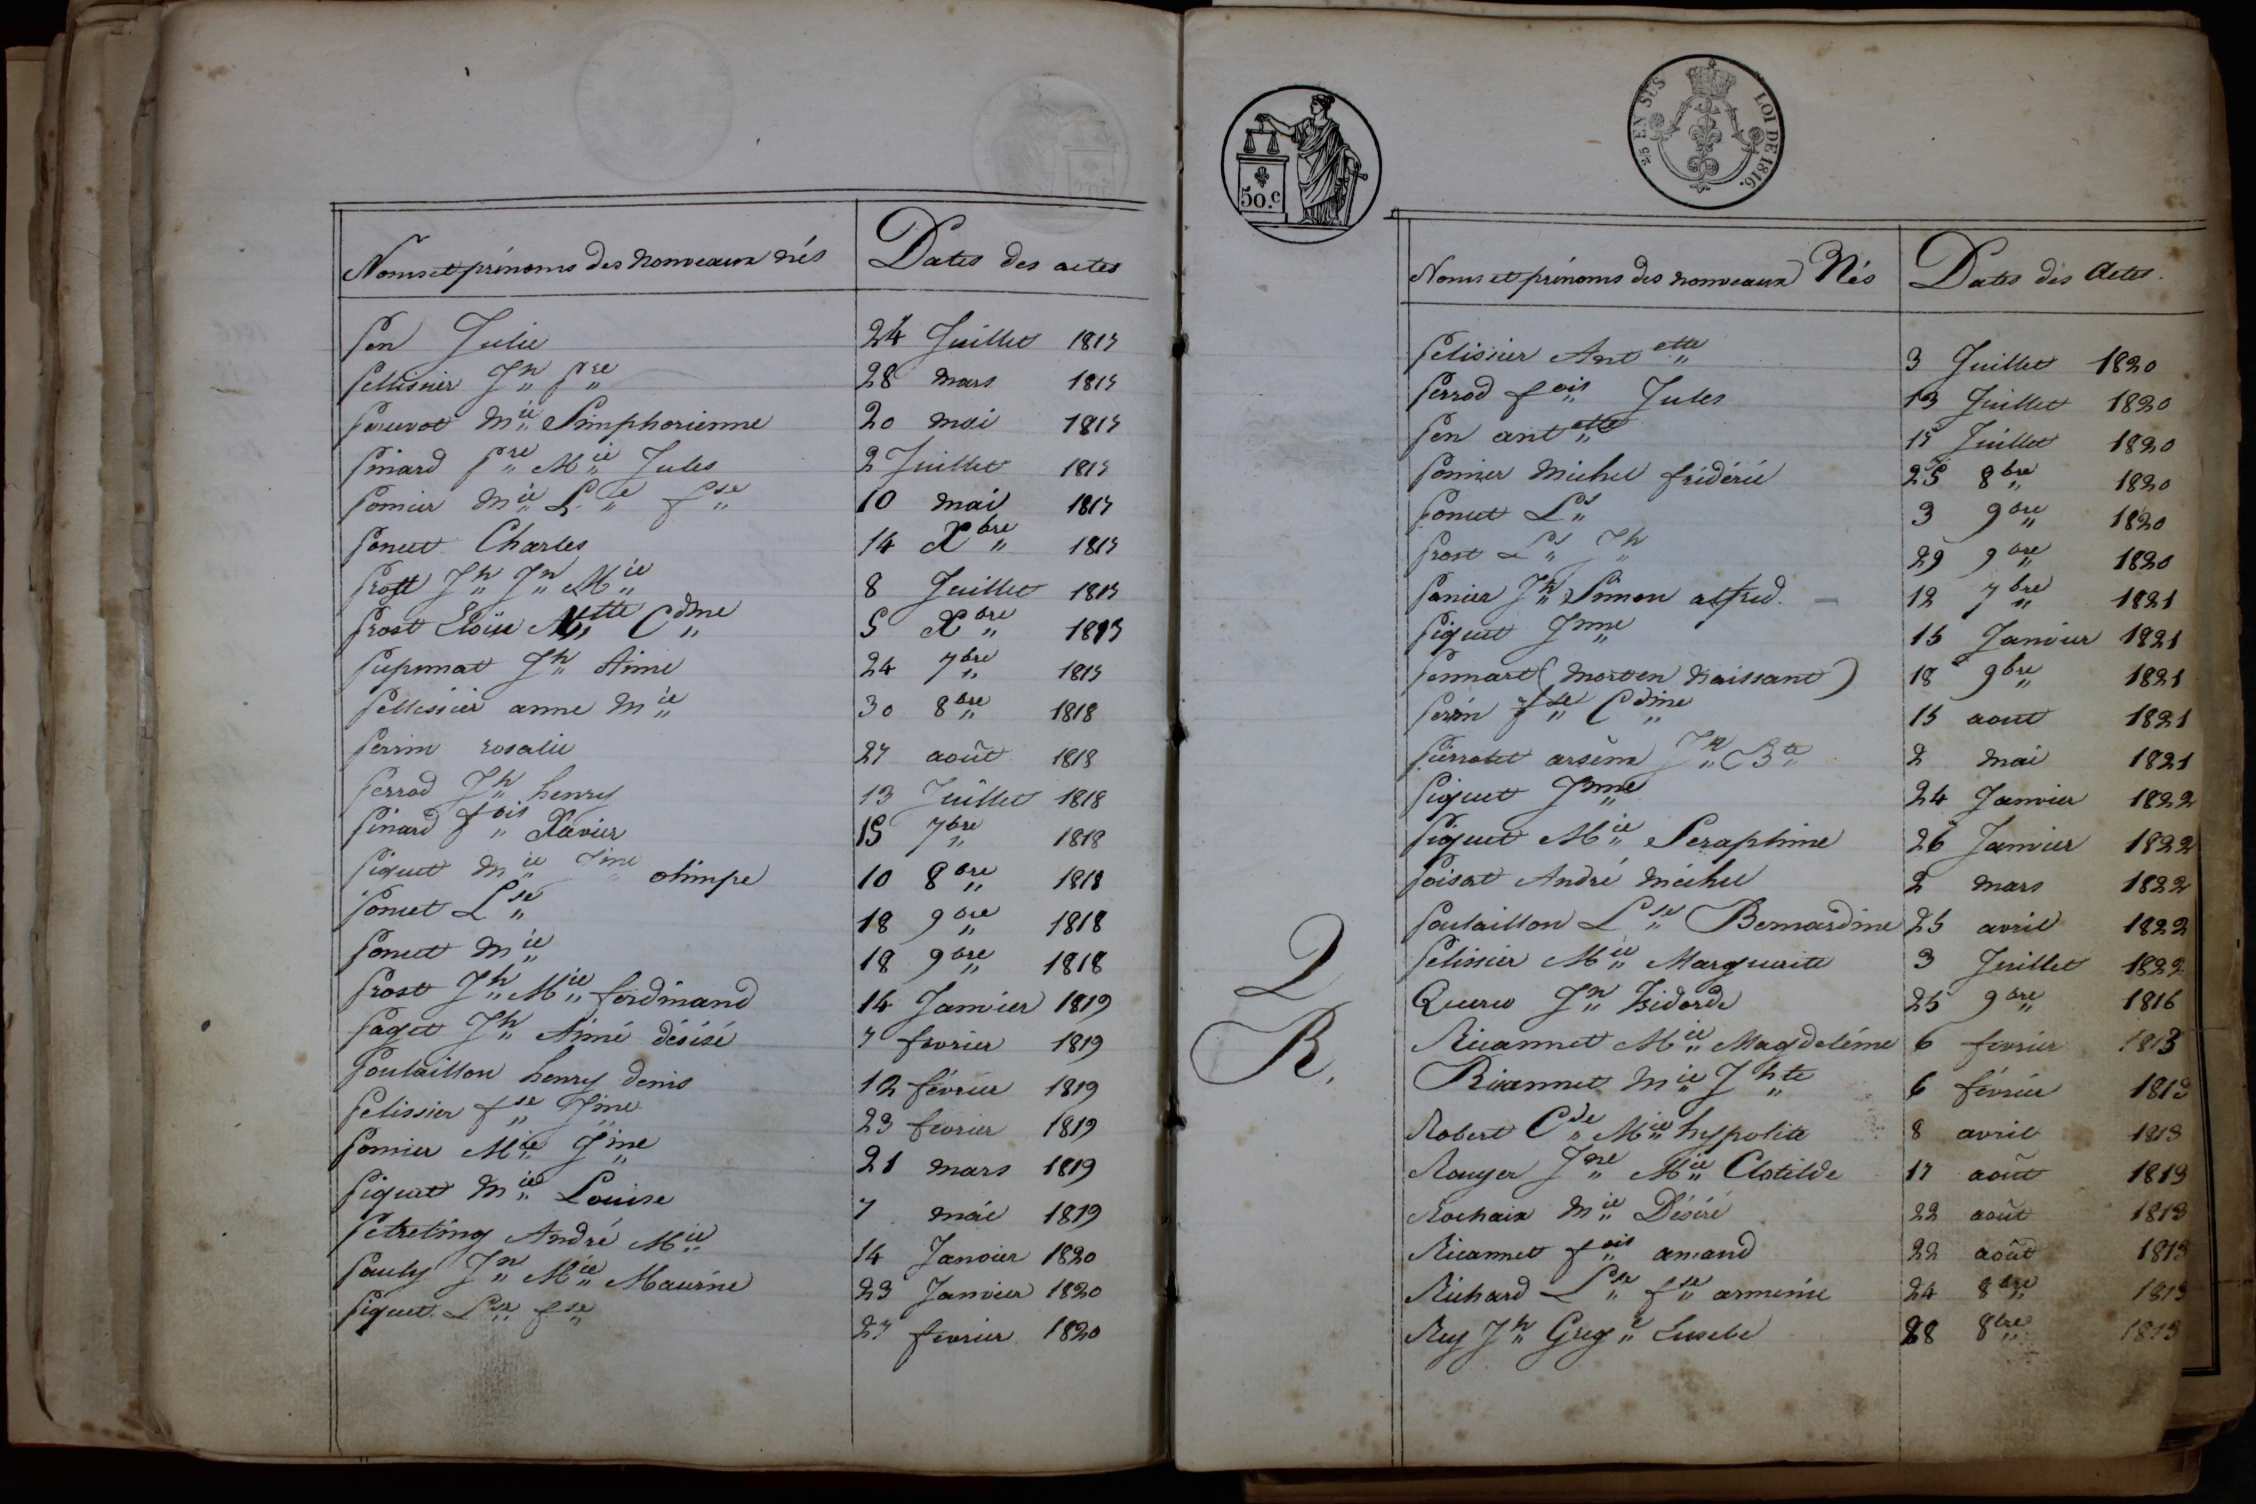 Noms et prénoms des nouveaux nés Dates des actes
Pen Julie 24 Juillet 1817
Pellissier Jn Pre 28 mars 1817
Mie Simphorienne 20 mai 1817
Pinard Pre Mie Jules 2 Juillet 1817
Pomier Mie Lse fse 10 mai 1817
Poncet Charles 14 Xbre 1817
Prost Jh Jn Mie 8 Juillet 1817
Prost Cdine 5 Xbre
Jh Aimé 24 7bre 1817
Pellissier anne Mie 30 8bre 1818
Perrin rosalie 27 août 1818
Perrod Jh henry 13 Juillet 1818
Pinard fois Xavier 15 7bre 1818
Piquet Mie Jine olimpe 10 8bre 1818
Poncet Lse 18 9bre 1818
Poncet Mie 18 9bre 1818
Prost Jh Mie ferdinand 14 Janvier 1819
Paget Jh Aimé désiré 7 fevrier 1819
Poulaillon henry denis 12 février 1819
Pelissier fse Jine 23 fevrier 1819
Pomier Mie Jine 21 mars 1819
Piquet Mie Louise 7 mai 1819
André Mie 14 Janvier 1820
Pauly Jn Mie Maurice 23 Janvier 1820
Piquet Lse fse 27 fevrier 1820
50.c
25 EN SUS LOI DE 1816.
Noms et prénoms des nouveaux Nés Dates des Actes.
Pelissier Antette 3 Juillet 1820
Perrod fois Jules 13 Juillet 1820
Pen antette 17 Juillet 1820
Pomier Michel fridéric 25 8bre 1820
Poncet Ls 3 9bre 1820
Prost Ls Jh 29 9bre 1820
Panier Jh Simon alfred. 12 7bre 1821
Piquet Jnne 15 Janvier 1821
Pennart (mort en naissant) 18 9bre 1821
Perrin fse Cdine 15 aout 1821
Pierrotet arsène Jn Bte 2 mai 1821
Piquet Jnne 24 Janvier 1822
Piquet Mie Seraphine 26 Janvier 1822
Poisat André Michel 2 mars 1822
Poulaillon Lse Bernardine 25 avril 1822
Pelissier Mie Marguerite 3 Juillet 1822
Q
Jn Isidorde 25 9bre 1816
R.
Ricannet Mie Magdeléine 6 fevrier 1813
Ricannet Mie Jhte 6 février 1813
Robert Cde Mie hypolite 8 avril 1813
Rouyer Jne Mie Clotilde 17 août 1813
Rochaix Mie Désiré 22 août 1813
Ricannet fois amand 22 août 1813
Richard Lse fse armenie 24 8bre 1813
Rey Jh Grege Eusebe 28 8bre 1813